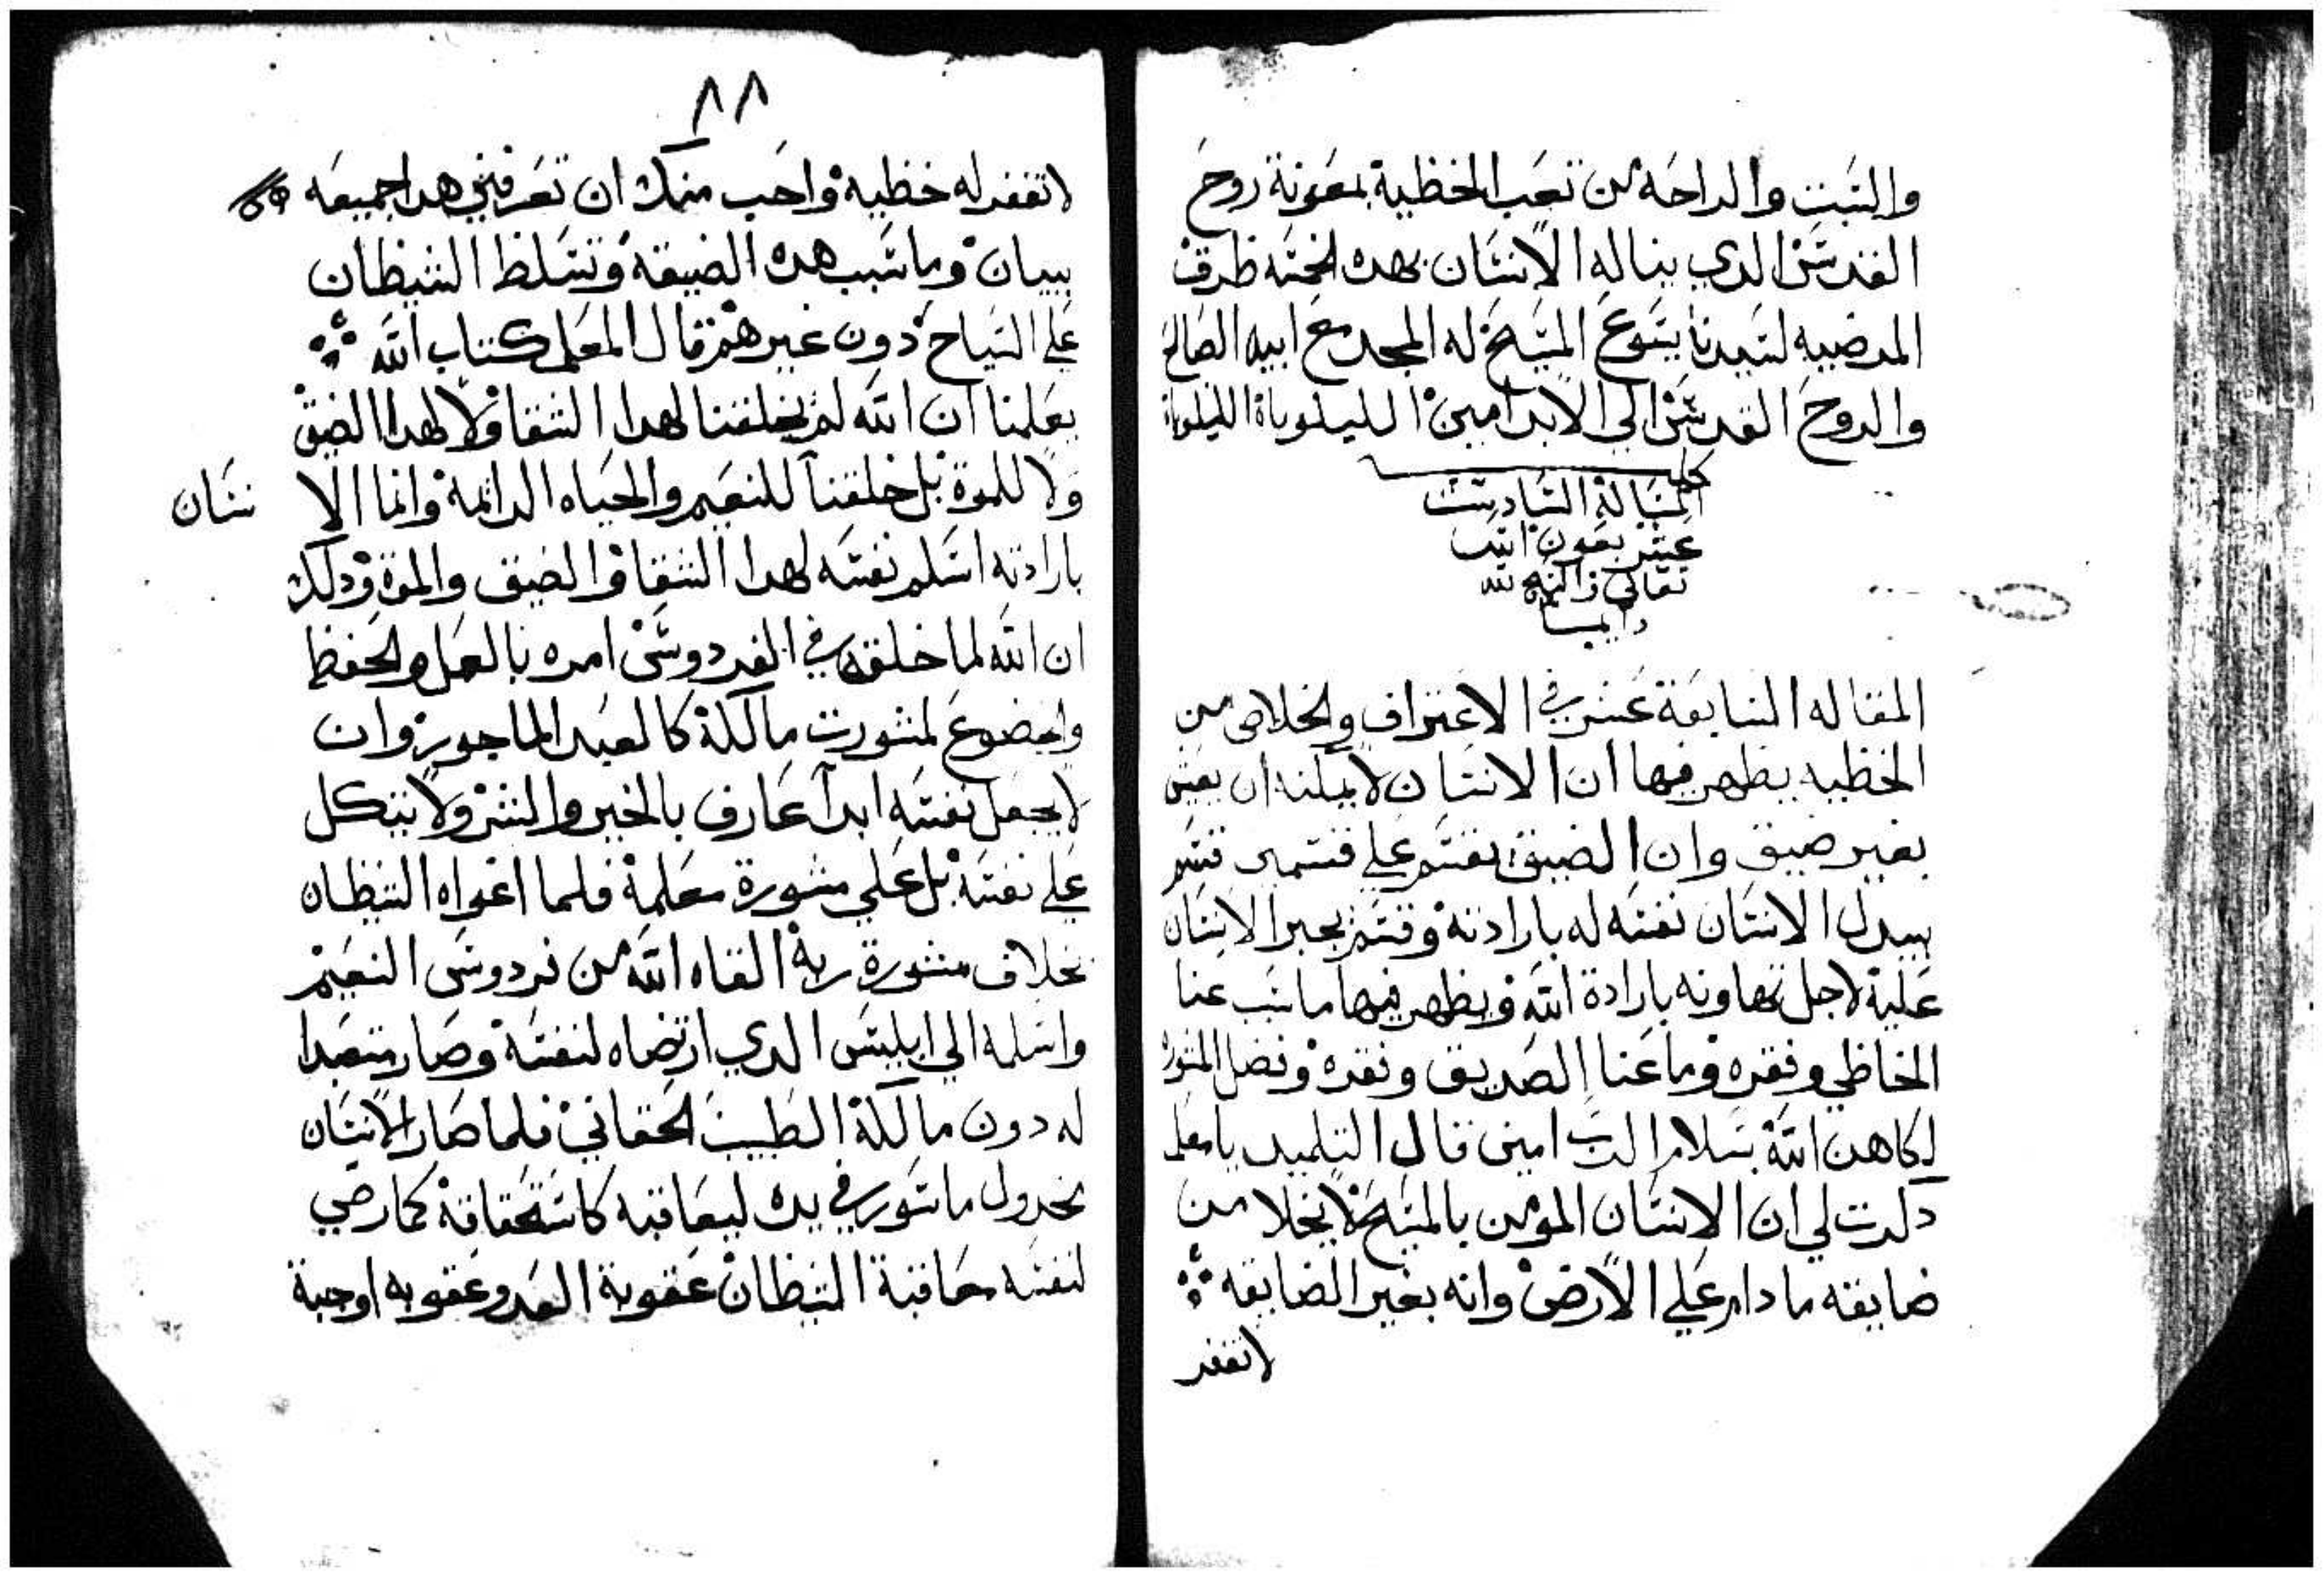 والسبت والراحه من تعب الخظية بمعونة روح
القدس الدي يناله الانسان بهده الخمسه ظرق
المرضيه لسيدنا يسوع المسيح له المجد مع ابيه الصالح
والروح القدس الي الابد امين الليلوياة الليلوياة
كملت
المقالة السادست
عشر بعون الله
تعالي والسبح لله
دايما
المقاله السابعة عشر في الاعتراف والخلاص من
الخظيه يظهر فيها ان الانسان لا يمكنه ان يعيش
بغير ضيق وان الضيق يقسم علي قسمين قسم
يبدل الانسان نفسه له بارادته وقسم يجبر الانسان
عليه لاجل تهاونه بارادة الله ويظهر فيها ما سبب غنا
الخاظي وفقره وما غنا الصديق وفقره وفضل المشوره
لكاهن الله بسلام الرب امين قال التلميد يا معلم
دكرت لي ان الانسان المومن بالمسيح لا يخلا من
ضايقه ما دام علي الارض وانه بغير الضايقه
لا تغفر
٨٨
لا تغفر له خظيه واحب منك ان تعرفني هدا جميعه
ببيان وما سبب هده الضيقه وتسلظ الشيظان
علي السياح دون غيرهم قال المعلم كتاب الله
يعلمنا ان الله لم يخلقنا لهدا الشقا ولا لهدا الضيق
ولا للموة بل خلقنا للنعيم والحياه الدائمة وانما الا نسان
بارادته اسلم نفسه لهدا الشقا والضيق والموة ودلك
ان الله لما خلقه في الفردوس امره بالعمل والحفظ
والخضوع لمشورت مالكه كالعبد الماجور وان
لا يجعل نفسه ابدآ عارف بالخير والشر ولا يتكل
علي نفسه بل علي مشورة معلمه فلما اغواه الشيظان
بخلاف مشورة ربه القاه الله من فردوس النعيم
واسلمه الي ابليس الدي ارتضاه لنفسه وصار متعبدا
له دون مالكه الطبيب الحقاني فلما صار الانسان
مخدول ماسور في يده ليعاقبه كاستحقاقه كما رضي
لنفسه معاقبة الشيظان عقوبة العدو عقوبه اوجبة